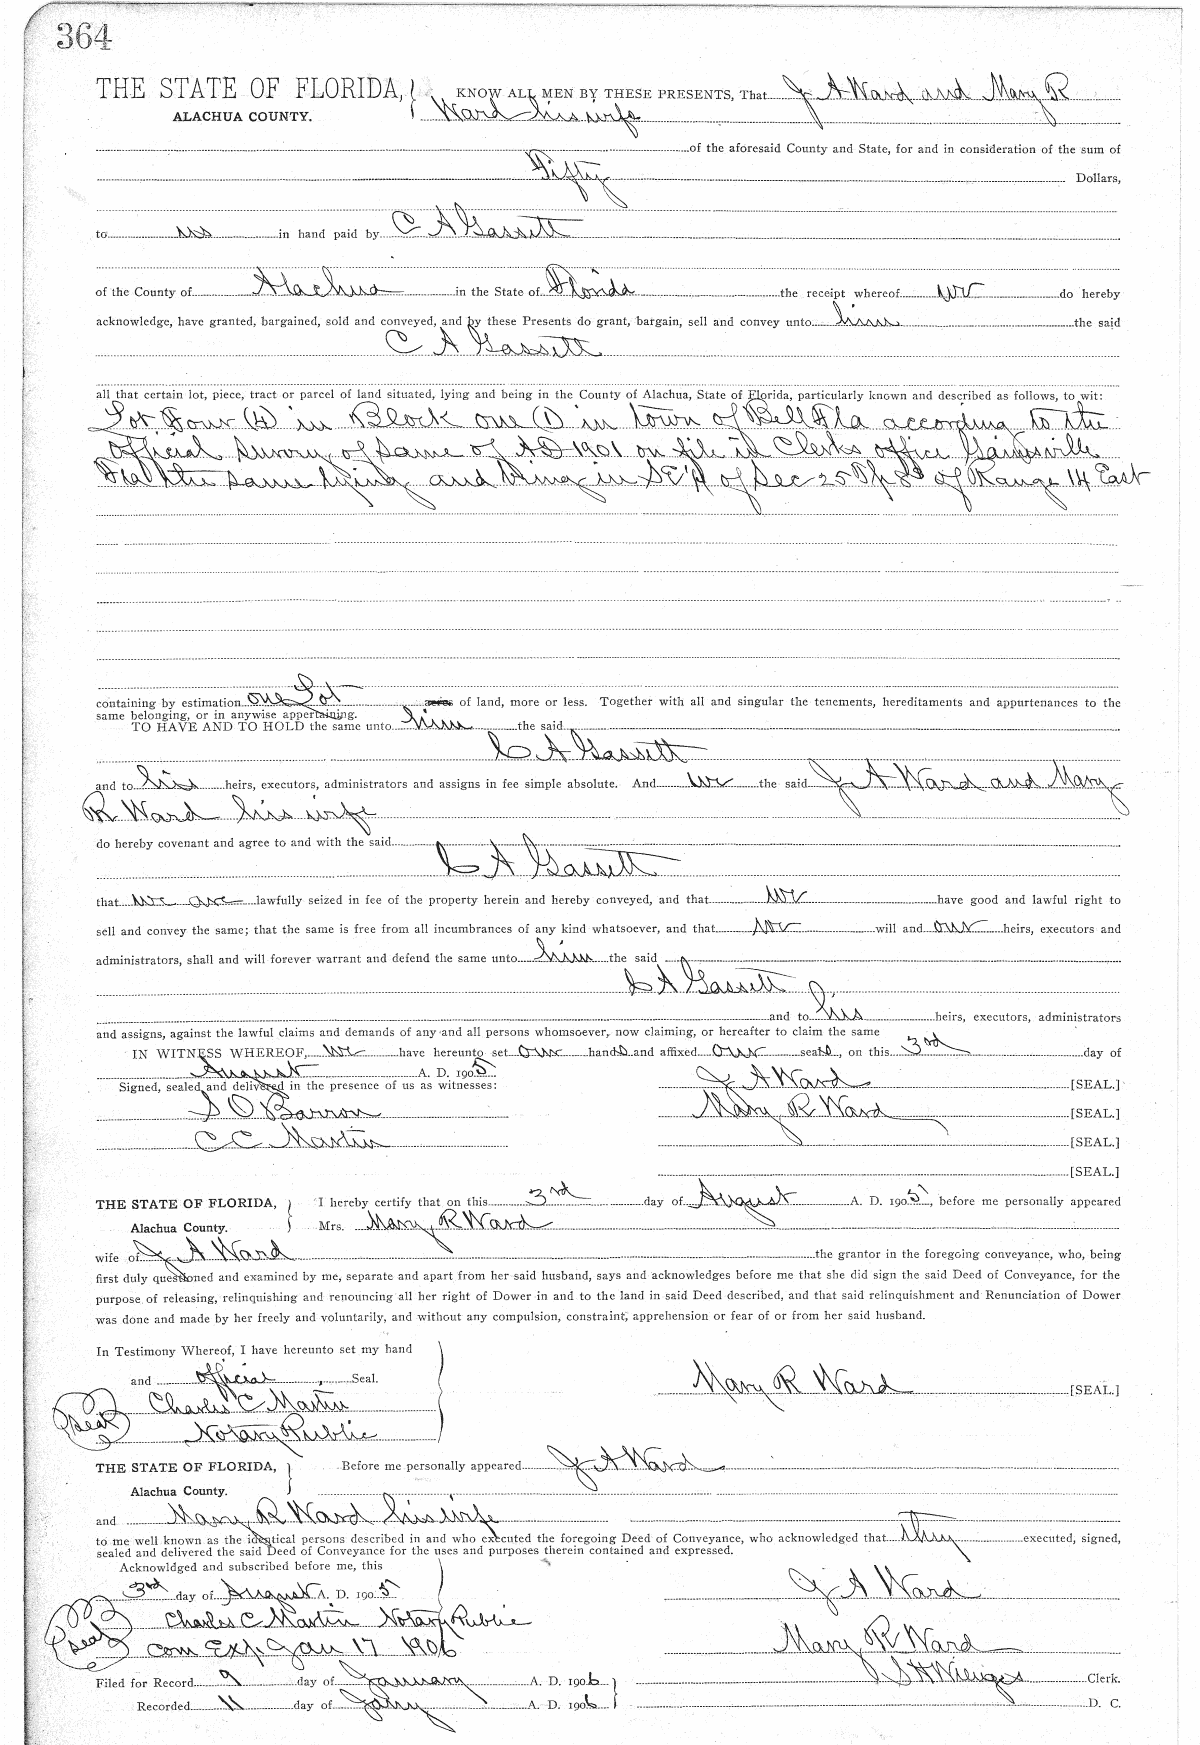 364
THE STATE OF FLORIDA, KNOW ALL MEN BY THESE PRESENTS, That J A Ward and Mary R
ALACHUA COUNTY. Ward his wife
of the aforesaid County and State, for and in consideration of the sum of
Fifty Dollars,
to us in hand paid by C A Gassett
of the County of Alachua in the State of Florida the receipt whereof we do hereby
acknowledge, have granted, bargained, sold and conveyed, and by these Presents do grant, bargain, sell and convey unto him the said
C A Gassett
all that certain lot, piece, tract or parcel of land situated, lying and being in the County of Alachua, State of Florida, particularly known and described as follows, to wit:
Lot Four (4) in Block one (1) in town of Bell Fla according to the
official survey of same of AD 1901 on file in Clerks office Gainesville
Fla the same lying and being in SE 1/4 of Sec 25 Tp 8 S of Range 14 East
containing by estimation one Lot acres of land, more or less. Together with all and singular the tenements, hereditaments and appurtenances to the
same belonging, or in anywise appertaining.
TO HAVE AND TO HOLD the same unto him the said
C A Gassett
and to his heirs, executors, administrators and assigns in fee simple absolute. And we the said J A Ward and Mary
R Ward his wife
do hereby covenant and agree to and with the said
C A Gassett
that we are lawfully seized in fee of the property herein and hereby conveyed, and that we have good and lawful right to
sell and convey the same; that the same is free from all incumbrances of any kind whatsoever, and that we will and our heirs, executors and
administrators, shall and will forever warrant and defend the same unto him the said
C A Gassett
and to his heirs, executors, administrators
and assigns, against the lawful claims and demands of any and all persons whomsoever, now claiming, or hereafter to claim the same
IN WITNESS WHEREOF, we have hereunto set our hands and affixed our seals, on this 3rd day of
August A. D. 1905
Signed, sealed and delivered in the presence of us as witnesses: J A Ward [SEAL.]
S O Barron Mary R Ward [SEAL.]
C C Martin [SEAL.]
[SEAL.]
THE STATE OF FLORIDA, I hereby certify that on this 3rd day of August A. D. 1905, before me personally appeared
Alachua County. Mrs. Mary R Ward
wife of J A Ward the grantor in the foregoing conveyance, who, being
first duly questioned and examined by me, separate and apart from her said husband, says and acknowledges before me that she did sign the said Deed of Conveyance, for the
purpose of releasing, relinquishing and renouncing all her right of Dower in and to the land in said Deed described, and that said relinquishment and Renunciation of Dower
was done and made by her freely and voluntarily, and without any compulsion, constraint, apprehension or fear of or from her said husband.
In Testimony Whereof, I have hereunto set my hand
and official Seal. Mary R Ward [SEAL.]
seal Charles C Martin
Notary Public
THE STATE OF FLORIDA, Before me personally appeared J A Ward
Alachua County.
and Mary R Ward his wife
to me well known as the identical persons described in and who executed the foregoing Deed of Conveyance, who acknowledged that they executed, signed,
sealed and delivered the said Deed of Conveyance for the uses and purposes therein contained and expressed.
Acknowldged and subscribed before me, this
3rd day of August A. D. 1905 J A Ward
seal Charles C Martin Notary Public
Com Exp Jan 17 1906 Mary R Ward
Filed for Record 9 day of January A. D. 1906 S H Wienges Clerk.
Recorded 11 day of Jany A. D. 1906 D. C.